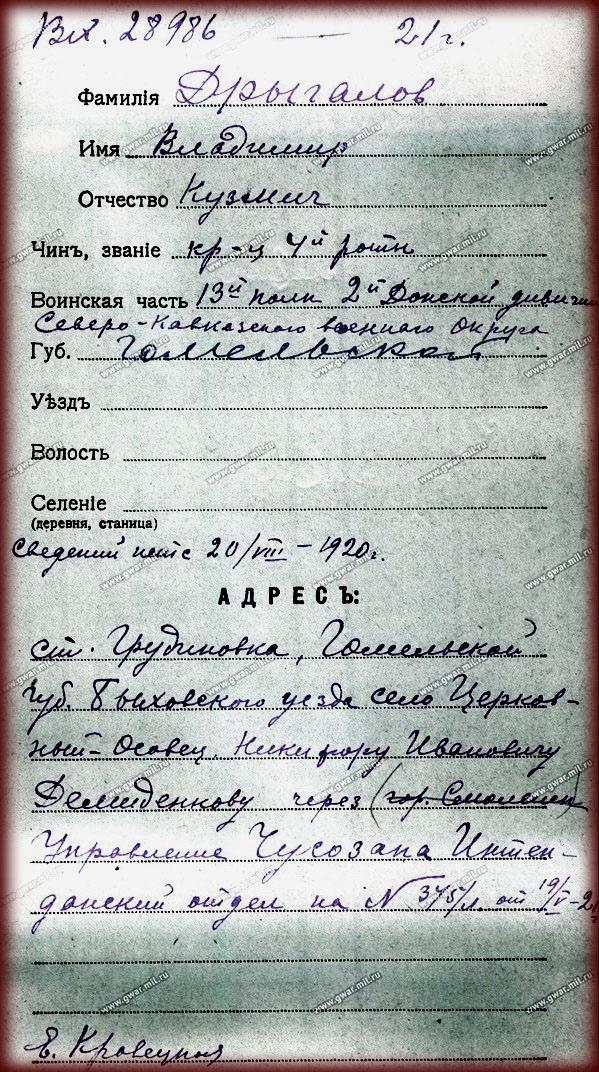 Вх. 28986 — 21 г.
Фамилія Дрыгалов
Имя Владимир
Отчество Кузмич
Чинъ, званіе кр-ц 4й роты
Воинская часть 13й полк 2й Донской дивизии
Северо-Кавказского военного Округа
Губ. Гомельской
Уѣздъ
Волость
Селеніе
(деревня, станица)
Сведений нет с 20/VIII – 1920 г.
АДРЕСЪ:
ст. Грудиновка, Гомельской
губ. Быховского уезда село Церков-
ный-Осовец. Никифору Ивановичу
Демиденкову через (гор. Смоленск)
Управление Чусозапа Интен-
данский отдел на № 375/л от 19/V-21
Е. Кровецкая
www.gwar.mil.ru